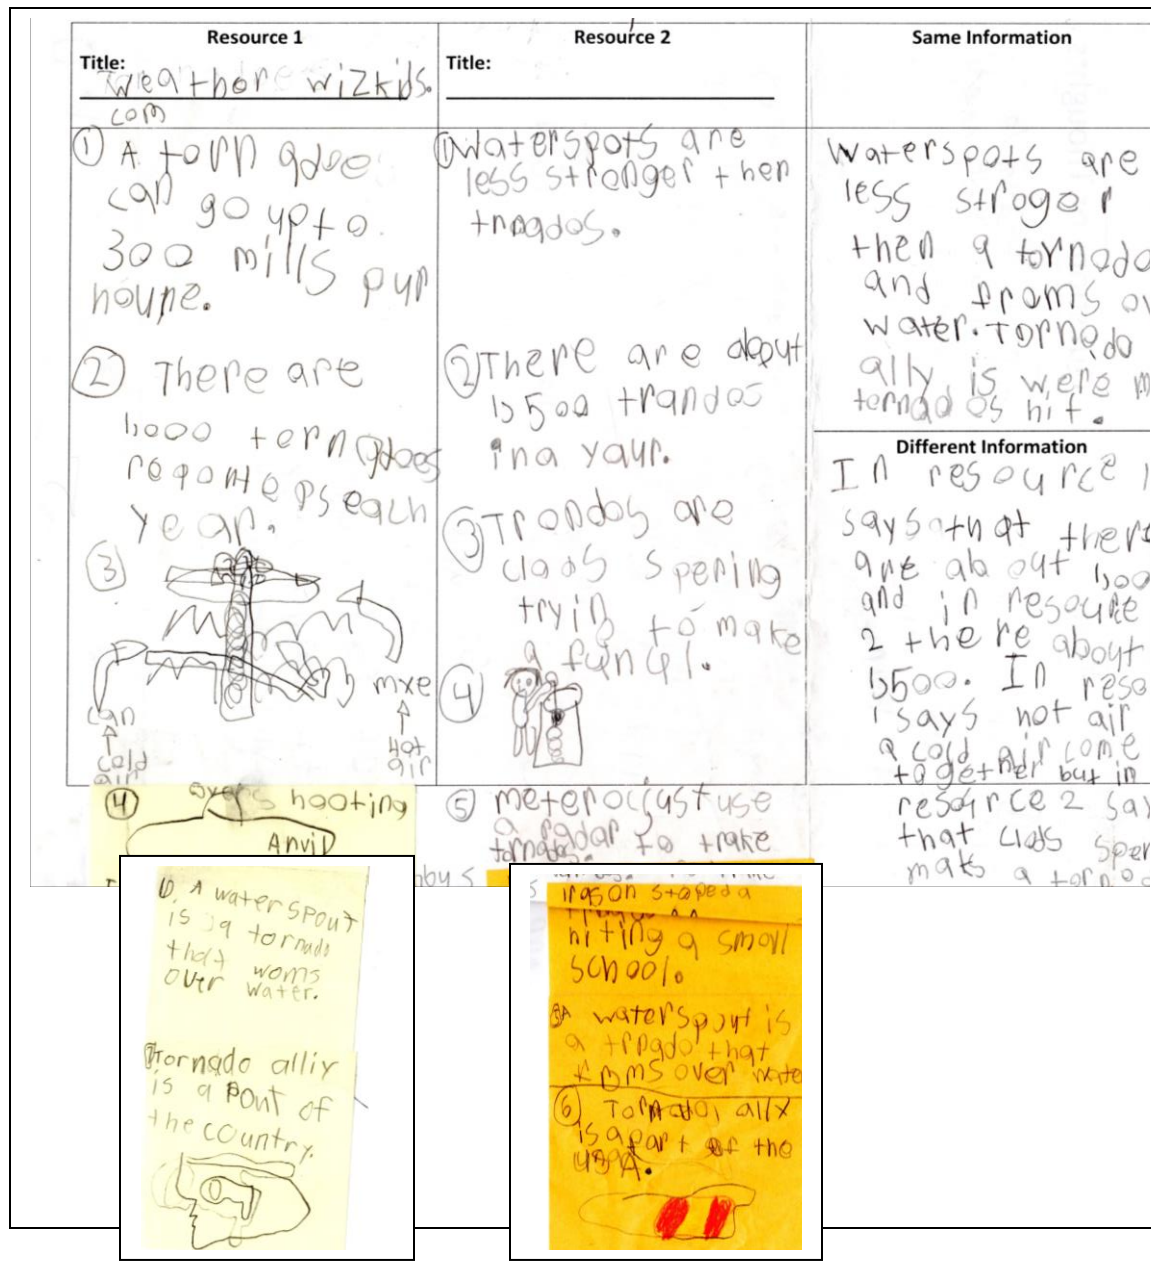 Resource 1
Title:
Weather wizkids.
com
① A torn adoe
can go upto
300 mills pur
houre.
② There are
1,000 tornadoes
each
year.
③
can
cold
air
mxe
Hot
air
④ overshooting
Anvil
Resource 2
Title:
① Waterspots are
less stronger then
trnados.
② There are about
1,500 trandos
in a yaur.
③ Trandos are
clads spering
tryin to make
a funul.
④
⑤ meterocjust use
a radar to trake
tornados.
Same Information
Waterspots are
less stroger
then a tornado
and froms ov
water. Tornado
ally is were m
ternados hit.
Different Information
In resource 1
says that ther
are about 1,000
and in resoure
2 there about
1,500. In reso
1 says hot air
a cold air come
together but in
resorce 2 say
that clads sper
maks a torno
A waterspout
is a tornado
that woms
over water.
Tornado alliy
is a Pont of
the country.
irason staped a
hiting a small
school.
A waterspout is
a trnado that
froms over wate
⑥ Tornado allx
is apart of the
USA.